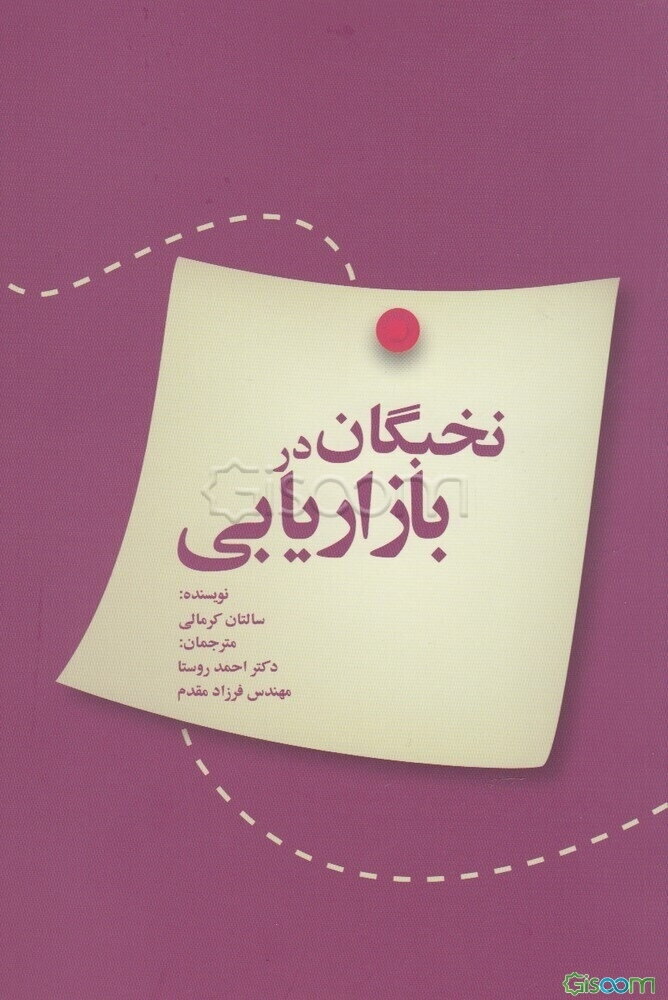 نخبگان در
بازاریابی
نویسنده:
سالتان کرمالی
مترجمان:
دکتر احمد روستا
مهندس فرزاد مقدم
Gisoom
Gisoom